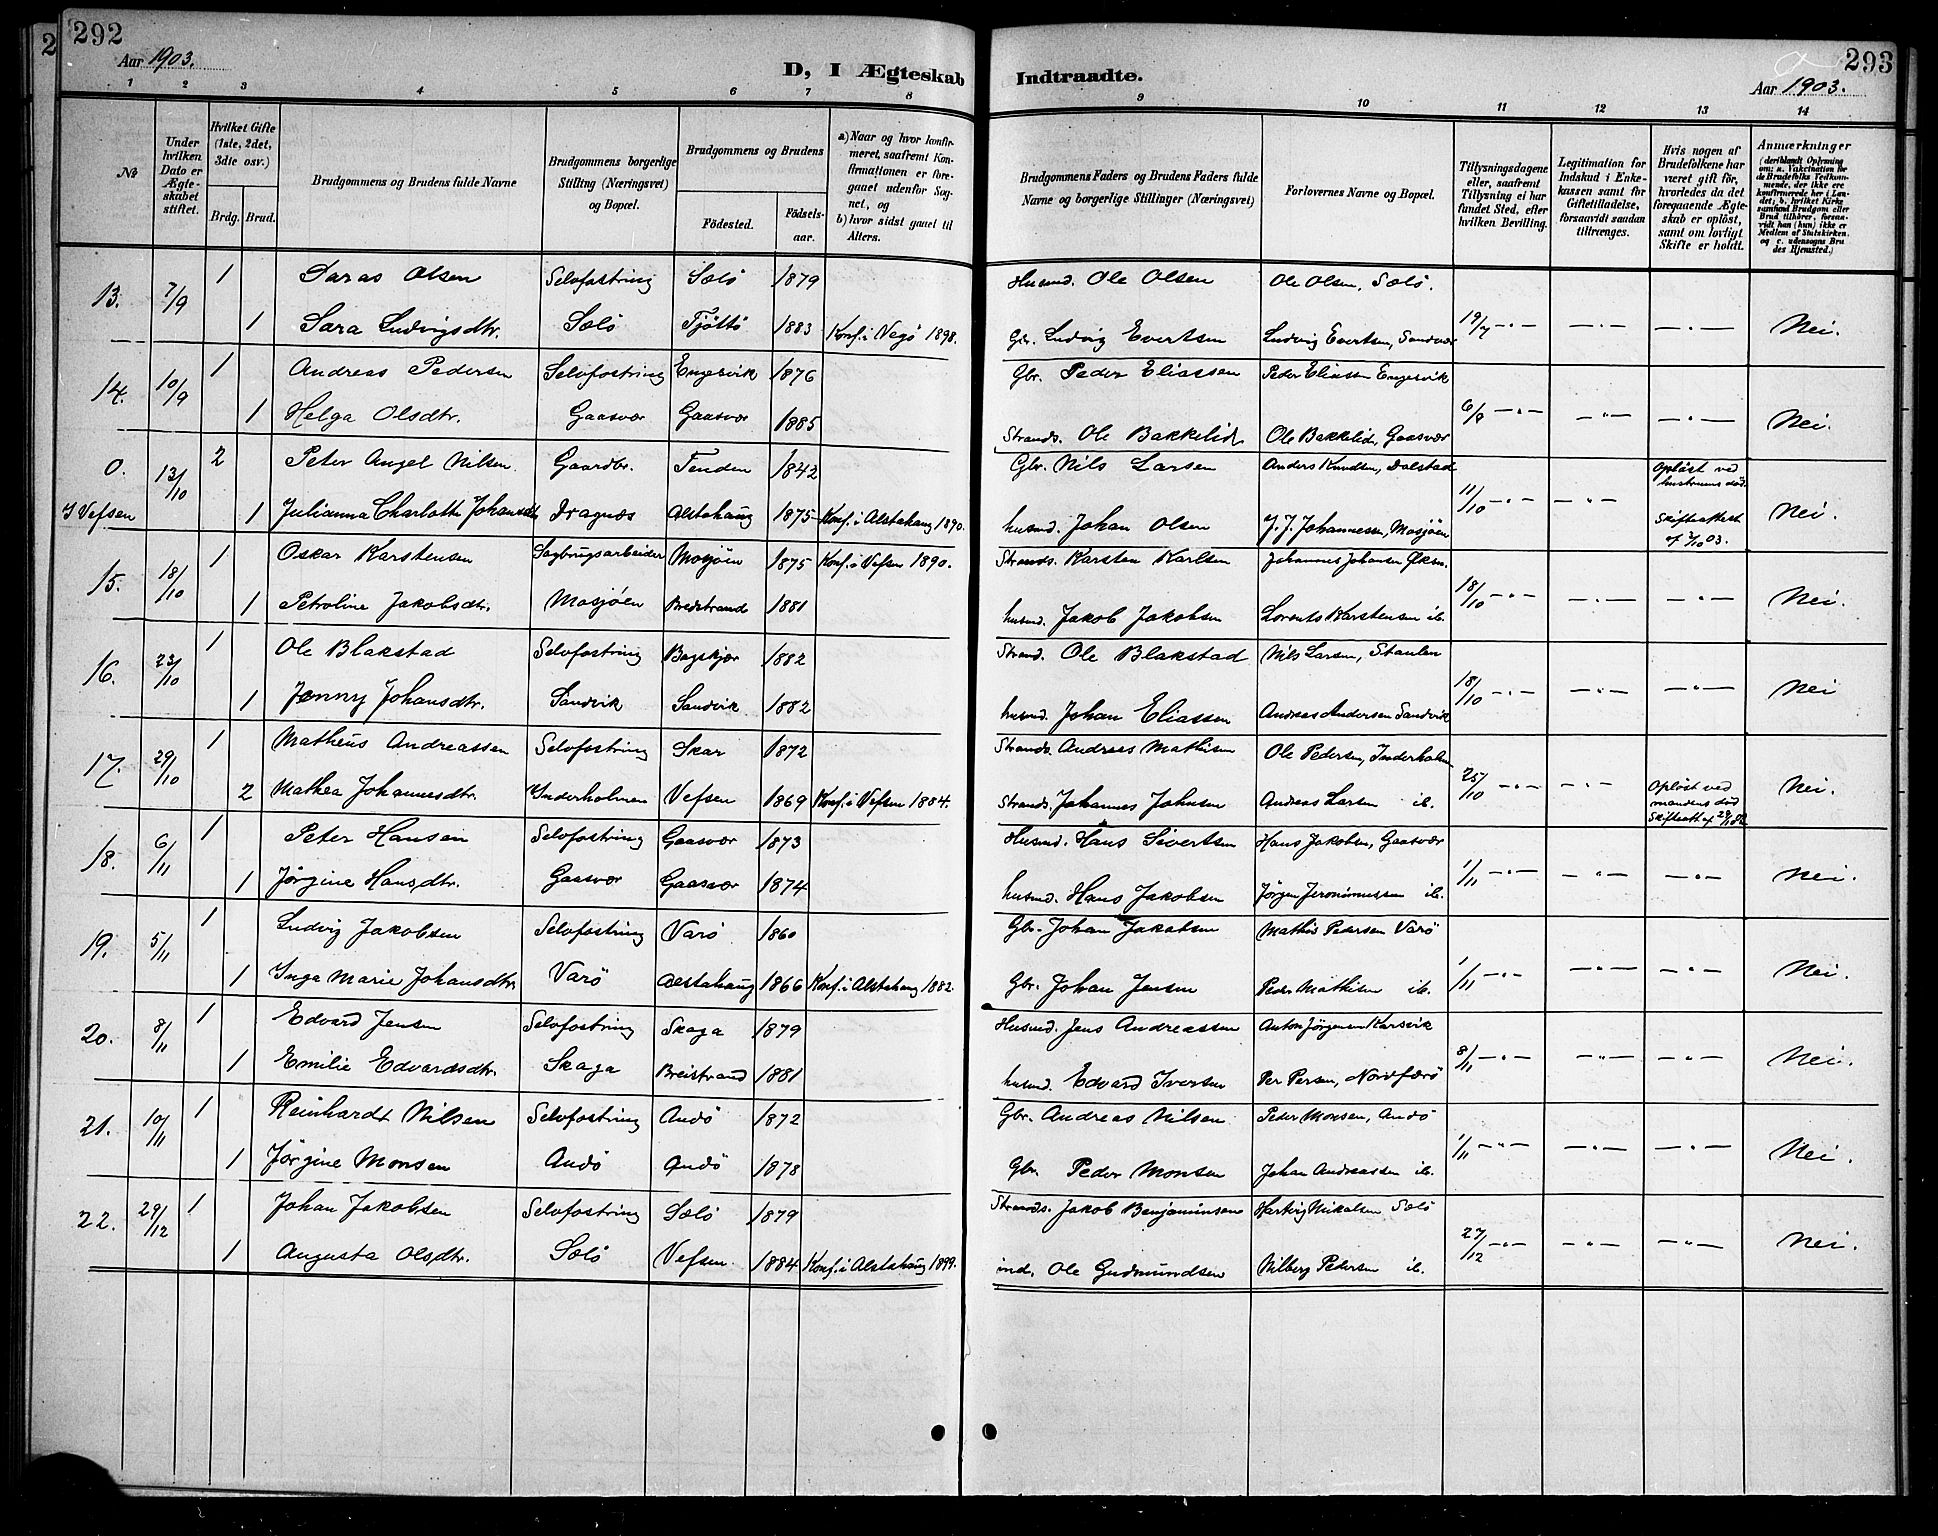 292
Aar 1903.
D, I Ægteskab Indtraadte.
293
Aar 1903.
1 2 3 4 5 6 7 8 9 10 11 12 13 14
No
Under hvilken Dato er Ægteskabet stiftet.
Hvilket Gifte (1ste, 2det, 3die osv.)
Brdg. Brud.
Brudgommens og Brudens fulde Navne
Brudgommens borgerlige Stilling (Næringsvei) og Bopæl.
Brudgommens og Brudens
Fødested.
Fødsels-aar.
a) Naar og hvor konfirmeret, saafremt Konfirmationen er foregaaet udenfor Sognet, og
b) hvor sidst gaaet til Alters.
Brudgommens Faders og Brudens Faders fulde Navne og borgerlige Stillinger (Næringsvei)
Forlovernes Navne og Bopæl.
Tillysningsdagene eller, saafremt Tillysning ei har fundet Sted, efter hvilken Bevilling.
Legitimation for Indskud i Enkekassen samt for Giftetilladelse, forsaavidt saadan tiltrænges.
Hvis nogen af Brudefolkene har været gift før, hvorledes da det foregaaende Ægteskab er opløst, samt om lovligt Skifte er holdt.
Anmærkninger
(deriblandt Oplysning om: a. Vakcination for de Brudefolks Vedkommende, der ikke ere konfirmerede her i Landet; b. hvilket Kirkesamfund Brudgom eller Brud tilhører, forsaavidt han (hun) ikke er Medlem af Statskirken. og c. udensogns Brudes Hjemsted.)
13. 7/9 1 Saras Olsen Selvfostring Sølø 1879 Husmd. Ole Olsen Ole Olsen, Sølø.
1 Sara Ludvigsdtr. Sølø Tjøttø 1883 Konf. i Vegø 1898. Gbr. Ludvig Evertsen Ludvig Evertsen, Sandvær 19/7 —"— —"— —"— Nei.
14. 10/9 1 Andreas Pedersen Selvfostring Engesvik 1876 Gbr. Peder Eliassen Peder Eliassen Engesvik
1 Helga Olsdtr. Gaasvær Gaasvær 1885 Strands. Ole Bakkelid Ole Bakkelid, Gaasvær 6/9 —"— —"— —"— Nei.
0. 13/10 2 Peter Angel Nilsen Gaardbr. Tenden 1842 Gbr. Nils Larsen Anders Knudsen, Dolstad Opløst ved hustruens død.
I Vefsen 1 Julianna Charlotte Johansdtr Dragnæs Alstahaug 1875 Konf. i Alstahaug 1890. husmd. Johan Olsen J. J. Johannessen, Mosjøen 11/10 —"— —"— Skifteattest af 3/10 03. Nei.
15. 18/10 1 Oskar Karstensen Sagbrugsarbeider Mosjøen 1875 Konf. i Vefsen 1890. Strands. Karsten Karlsen Johannes Johansen Øksn.
1 Petroline Jakobsdtr. Mosjøen Bredstrand 1881 husmd. Jakob Jakobsen Lorents Karstensen ib. 18/10 —"— —"— —"— Nei.
16. 23/10 1 Ole Blakstad Selvfostring Bagskjær 1882 Strand. Ole Blakstad Nils Larsen, Staulen
1 Jenny Johansdtr. Sandvik Sandvik 1882 husmd. Johan Eliassen Andreas Andersen Sandvik 18/10 —"— —"— —"— Nei
17. 29/10 1 Matheus Andreassen Selvfostring Skar 1872 Strands. Andreas Mathisen Ole Pedersen, Inderholmen
2 Mathea Johannesdtr. Ynderholmen Vefsen 1869 Konf. i Vefsen 1884. Strands. Johannes Johnsen Andreas Larsen ib. 25/10 —"— —"— Opløst ved mandens død Skifteatt af Nei.
18. 6/11 1 Peter Hansen Selvfostring Gaasvær 1873 Husmd. Hans Sivertsen Hans Jakobsen, Gaasvær
1 Jørgine Hansdtr. Gaasvær Gaasvær 1874 husmd. Hans Jakobsen Jørgen Jeronimussen ib. 1/11 —"— —"— —"— Nei.
19. 5/11 1 Ludvig Jakobsen Selvfostring Varø 1860 Gbr. Johan Jakobsen Mathis Pedersen Varø
1 Inga Marie Johansdtr. Varø Alstahaug 1866 Konf. i Alstahaug 1882. Gbr. Johan Jensen Peder Mathisen ib. 1/11 —"— —"— —"— Nei.
20. 8/11 1 Edvard Jensen Selvfostring Skaga 1879 Husmd. Jens Andreassen Anton Jørgensen Karsvik
1 Emilie Edvardsdtr. Skaga Breistrand 1881 husmd. Edvard Iversen Per Persen, Nordfærø 8/11 —"— —"— —"— Nei.
21. 10/11 1 Reinhardt Nilsen Selvfostring Andø 1872 Gbr. Andreas Nilsen Peder Monsen, Andø
1 Jørgine Monsen Andø Andø 1878 Gbr. Peder Monsen Johan Andreassen ib. 1/11 —"— —"— —"— Nei.
22. 29/12 1 Johan Jakobsen Selvfostring Sølø 1879 Strands. Jakob Benjaminsen Hartvig Nikalsen Sølø
1 Augusta Olsdtr. Sølø Vefsen. 1884 Konf. i Alstahaug 1899. ind. Ole Gudmundsen Nilberg Pedersen ib. 27/12 —"— —"— —"— Nei.